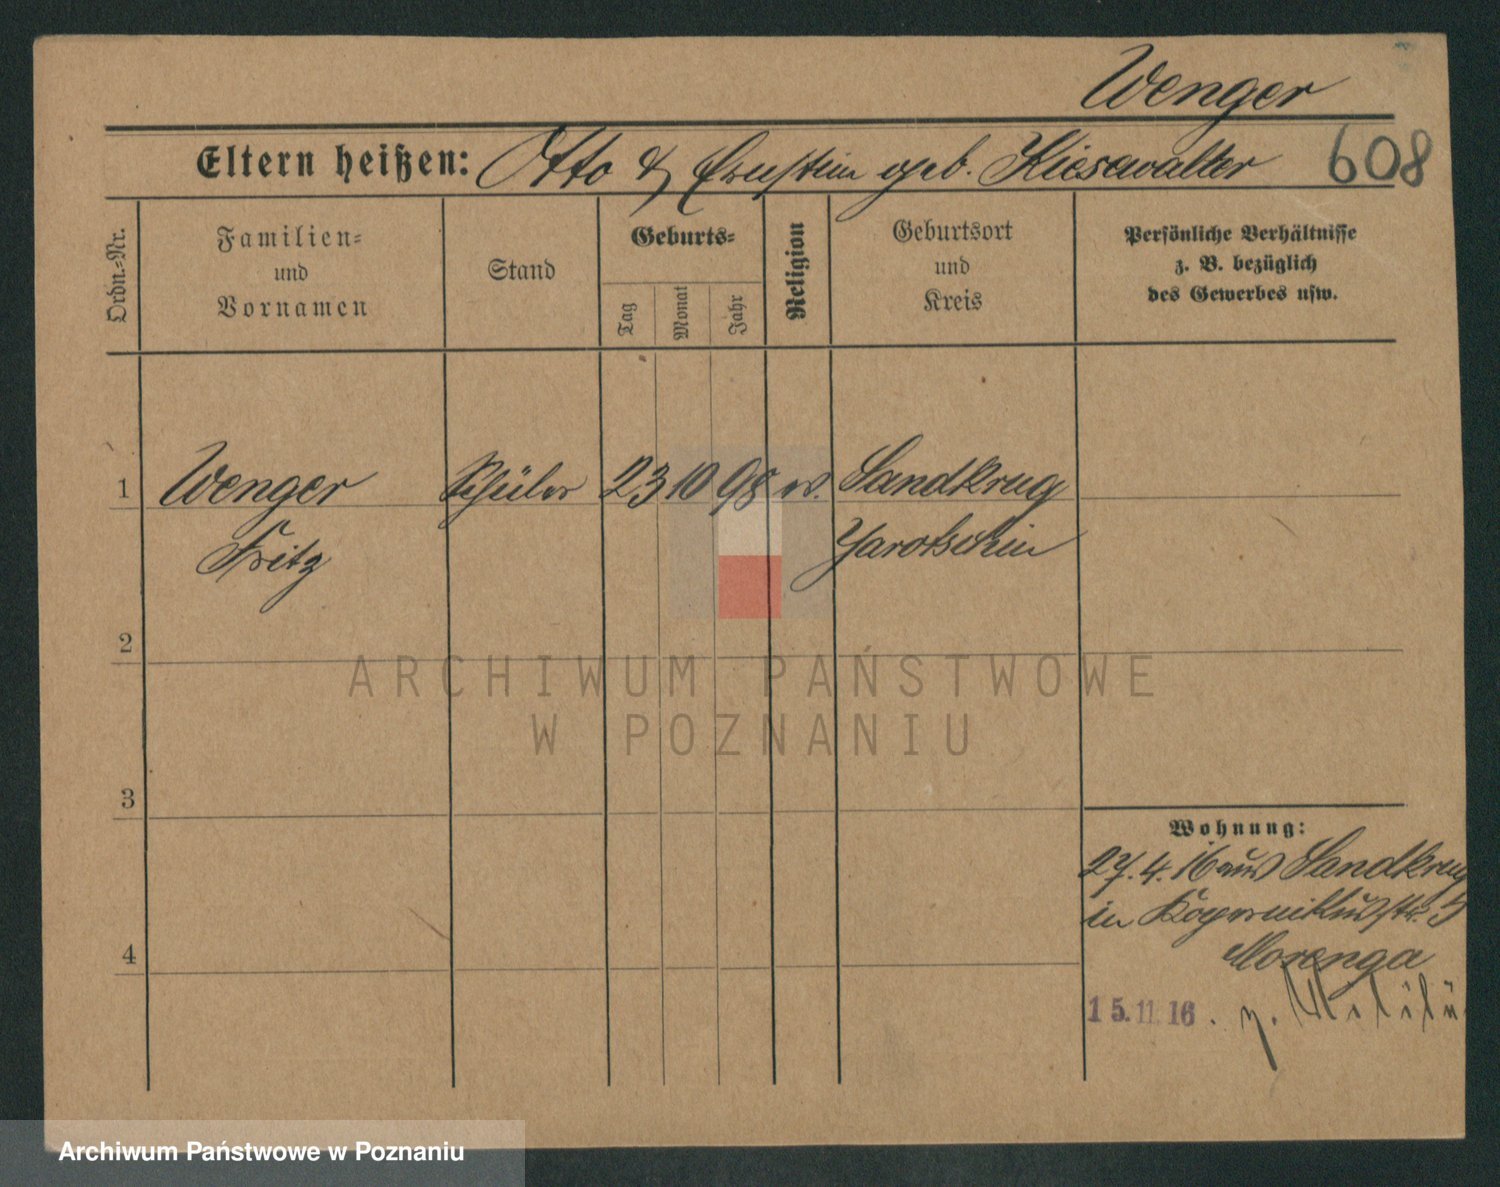 Wenger
608
Eltern heißen: Otto & Ernstine geb. Kiesewalter
Ordn.-Nr.
Familien-
und
Vornamen
Stand
Geburts-
Tag
Monat
Jahr
Religion
Geburtsort
und
Kreis
Persönliche Verhältnisse
z. B. bezüglich
des Gewerbes usw.
1 Wenger Schüler 23 10 98 ev. Sandkrug
Fritz Jarotschin
2
3
4
Wohnung:
27.4.16 aus Sandkrug
in Kopernikusstr. 5
Morenga
15.11.16. z.
ARCHIWUM PAŃSTWOWE
W POZNANIU
Archiwum Państwowe w Poznaniu